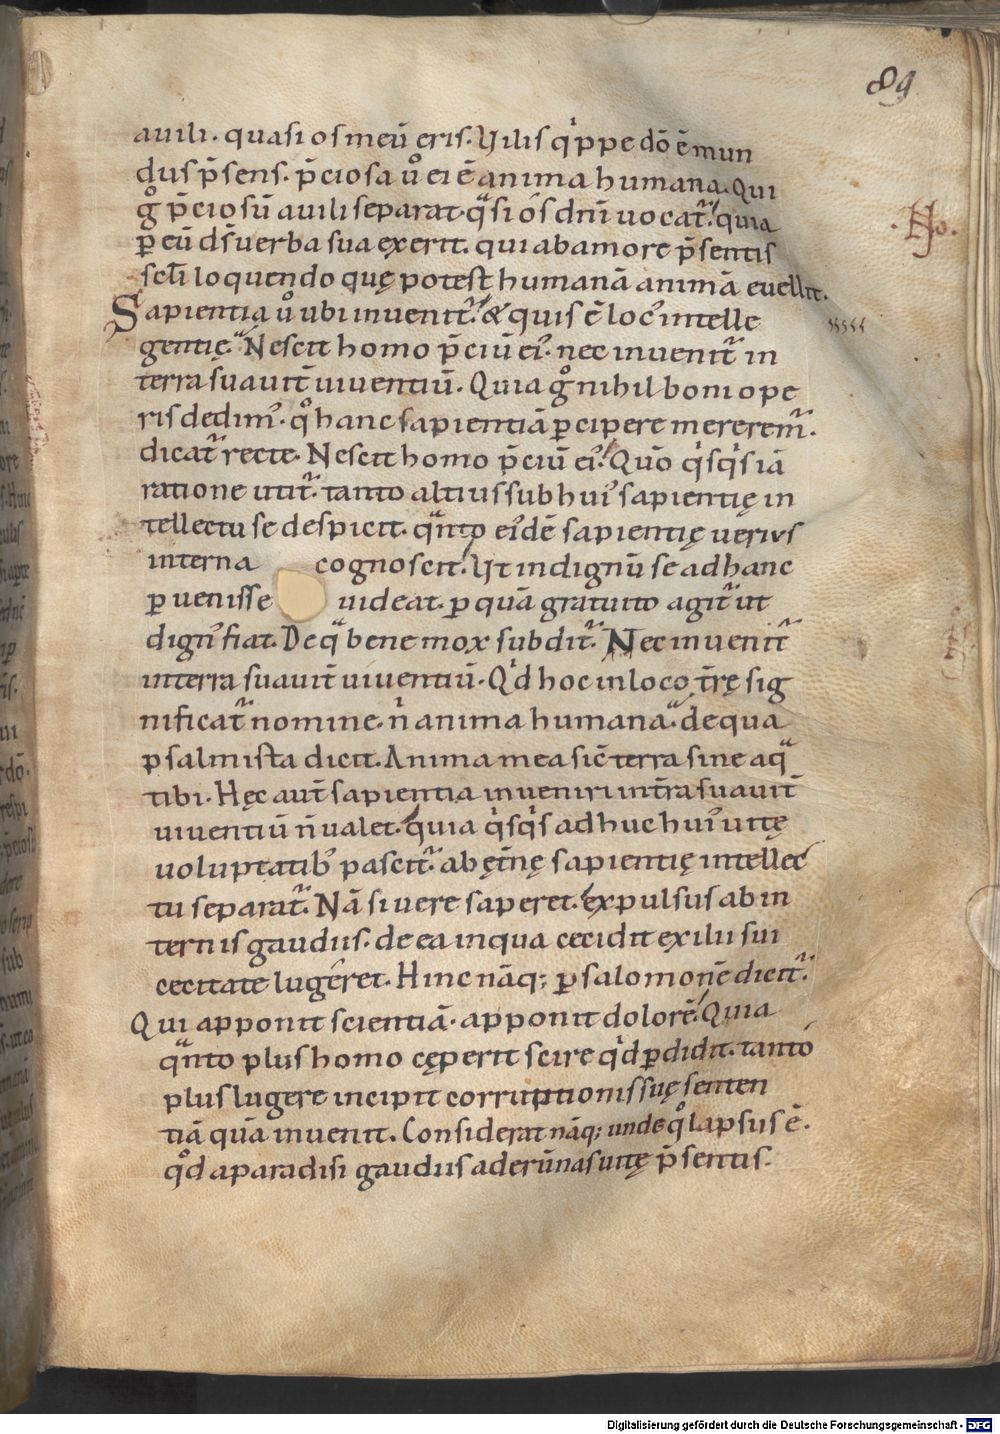 89
auili. quasi os meū eris. Uilis q̇ppe dō ē mun
dus p̄sens. p̄ciosa u̇o ei ē anima humana. Qui
gͦ p̄ciosū auili separat. qᵃsi os dnī uocatᷣ. quia
ꝑ eū ds̄ uerba sua exerit. qui ab amore p̄sentis
sclī loquendo quę potest humanā animā euellit.
Sapientia uͦ ubi inuenitᷣ. & quis ē locꝰ intelle
gentię. Nescit homo p̄ciū eiꝰ. nec inuenitᷣ in
terra suauit̄ uiuentiū. Quia gͦ nihil boni ope
ris dedimꝰ. qͦ hanc sapientiā ꝑcipere mereremᷣ.
dicatᷣ recte. Nescit homo p̄ciū eiꝰ. Quō qͥsqͥs iā
ratione utitᷣ. tanto altius sub huiꝰ sapientię in
tellectu se despicit. qᵃnto eiꝰdē sapientię uerius
interna cognoscit. Ut indignū se ad hanc
ꝑuenisse uideat. ꝑ quā gratuito agitᷣ ut
dignꝰ fiat. De qᵃ bene mox subditᷣ. Nec inuenitᷣ
in terra suauit̄ uiuentiū. Qͥd hoc in loco tr̄ę sig
nificatᷣ nomine. n̄ anima humana. de qua
psalmista dicit. Anima mea sic̄ terra sine aqᵃ
tibi. Hęc aut̄ sapientia inueniri in tr̄a suauit̄
uiuentiū n̄ ualet. quia qͥsqͥs adhuc huiꝰ uitę
uoluptatibꝰ pascitᷣ. ab ęt̄nę sapientię intellec
tu separatᷣ. Nā si uere saperet. expulsus ab in
ternis gaudiis. de ea in qua cecidit exilii sui
cecitate lugeret. Hinc nāq; ꝑ salomonē dicitᷣ.
Qui apponit scientiā. apponit dolorē. Quia
qᵃnto plus homo cęperit scire qͥd ꝑdidit. tanto
plus lugere incipit corruptionis suę senten
tiā quā inuenit. Considerat nāq; unde qͦ lapsus ē.
qͦd a paradisi gaudiis ad erūnas uitę p̄sentis.
Digitalisierung gefördert durch die Deutsche Forschungsgemeinschaft - DFG